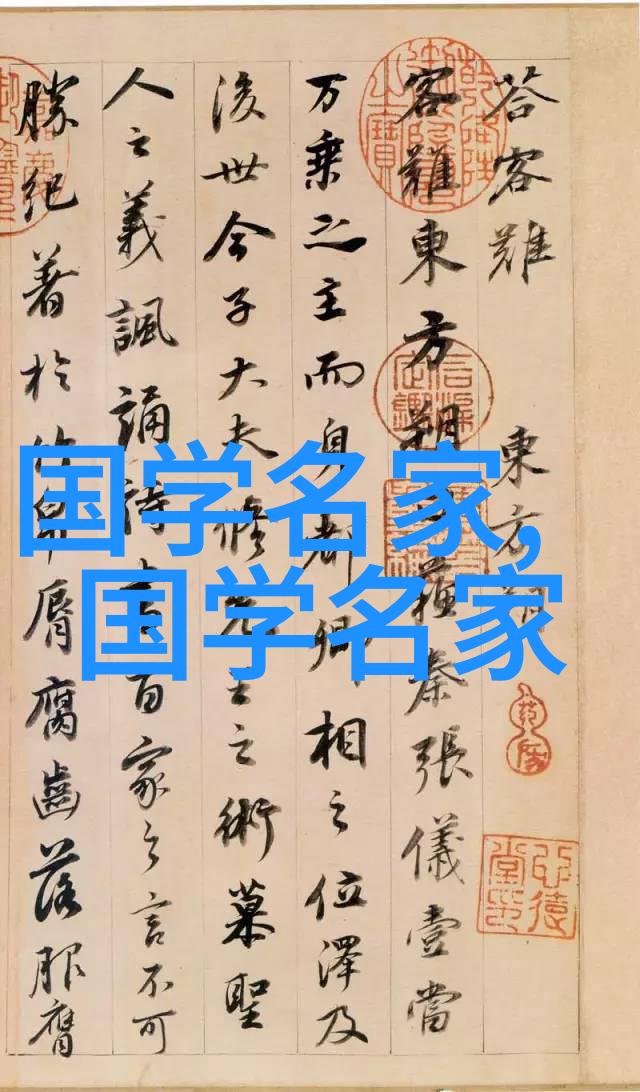 荅客難 東方朔
客難東方朔曰蘇秦張儀壹當
万乘之主而身都卿相之位澤及
後世今子大夫脩先王之術慕聖
人之義諷誦詩書百家之言不可
勝紀著於竹帛脣腐齒落服膺
国学名家,
国学名家